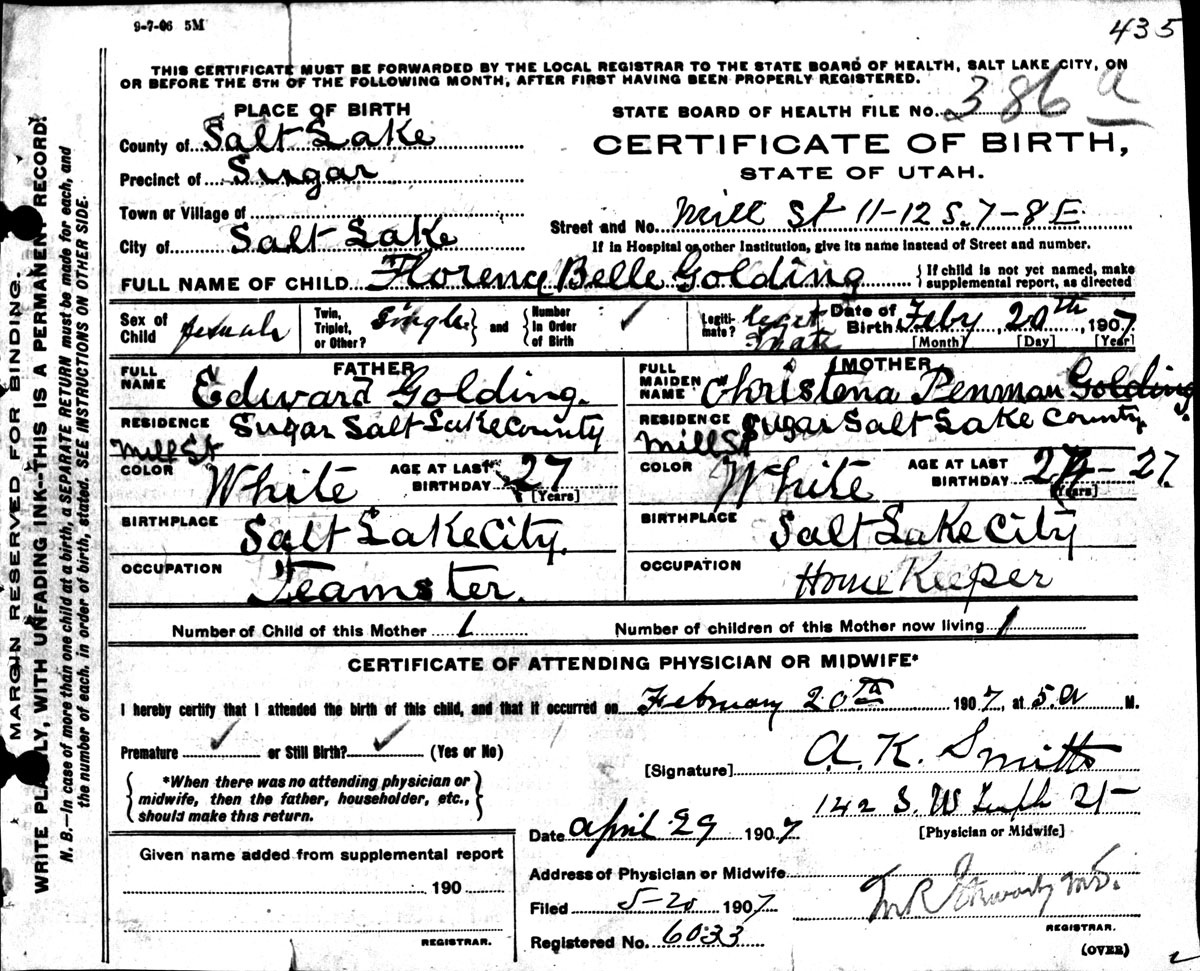 9-7-06 5M
435
THIS CERTIFICATE MUST BE FORWARDED BY THE LOCAL REGISTRAR TO THE STATE BOARD OF HEALTH, SALT LAKE CITY, ON
OR BEFORE THE 5TH OF THE FOLLOWING MONTH, AFTER FIRST HAVING BEEN PROPERLY REGISTERED.
PLACE OF BIRTH
STATE BOARD OF HEALTH FILE NO. 386 a
County of Salt Lake
CERTIFICATE OF BIRTH,
Precinct of Sugar
STATE OF UTAH.
Town or Village of
Street and No. Mill St 11-12 S. 7-8 E
City of Salt Lake
If in Hospital or other Institution, give its name instead of Street and number.
FULL NAME OF CHILD Florence Belle Golding { If child is not yet named, make supplemental report, as directed
Sex of Child female Twin, Triplet, or Other? Single } and { Number in Order of Birth ✓ Legitimate? Legitimate Date of Birth Feby 20th, 1907
[Month] [Day] [Year]
FATHER
MOTHER
FULL NAME Edward Golding.
FULL MAIDEN NAME Christena Penman Golding
RESIDENCE Sugar Salt Lake County
Mill St
RESIDENCE Sugar Salt Lake County
Mill St
COLOR White AGE AT LAST BIRTHDAY 27 [Years]
COLOR White AGE AT LAST BIRTHDAY 27. [Years]
BIRTHPLACE Salt Lake City.
BIRTHPLACE Salt Lake City
OCCUPATION Teamster.
OCCUPATION Home Keeper
Number of Child of this Mother 1
Number of children of this Mother now living 1
CERTIFICATE OF ATTENDING PHYSICIAN OR MIDWIFE*
I hereby certify that I attended the birth of this child, and that it occurred on February 20th 1907, at 5 A M.
Premature ✓ or Still Birth? ✓ (Yes or No)
*When there was no attending physician or
midwife, then the father, householder, etc.,
should make this return.
[Signature] A. K. Smith
142 S. W
Date April 29 1907
[Physician or Midwife]
Given name added from supplemental report
190
REGISTRAR.
Address of Physician or Midwife
Filed 5-20 1907
REGISTRAR.
Registered No. 6033
(OVER)
MARGIN RESERVED FOR BINDING.
WRITE PLAINLY, WITH UNFADING INK--THIS IS A PERMANENT RECORD!
N. B.—In case of more than one child at a birth, a SEPARATE RETURN must be made for each, and
the number of each, in order of birth, stated. SEE INSTRUCTIONS ON OTHER SIDE.